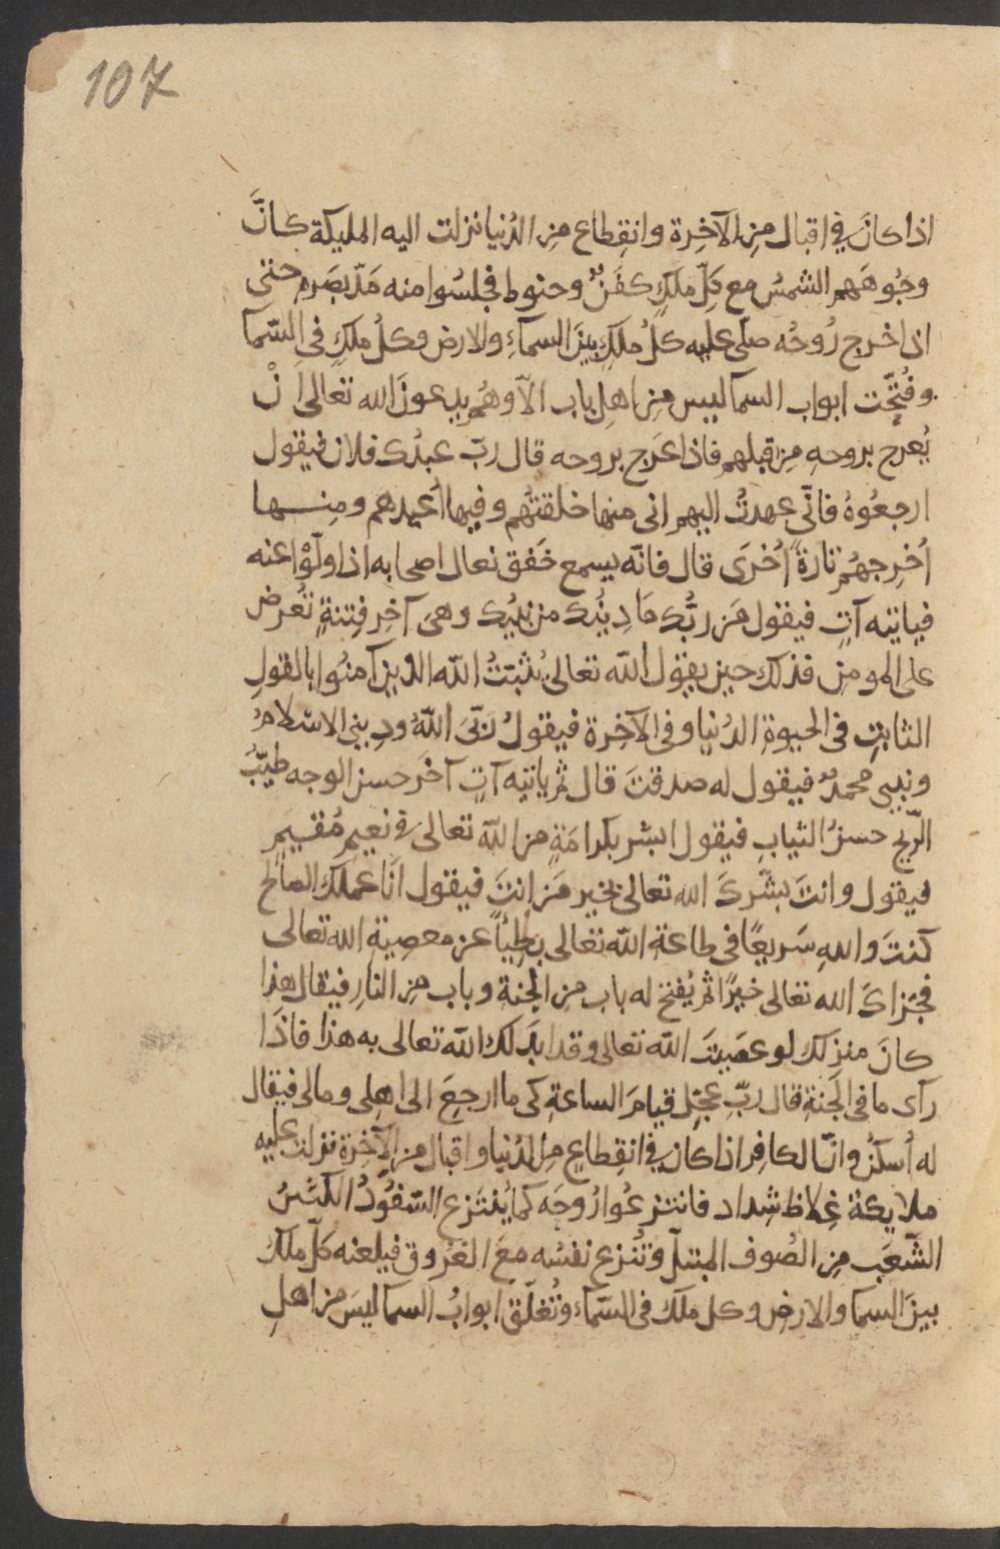 107
اذا كانَ في اقبال مِن الآخِرة وانقِطاع مِن الدُنيا نزلت اليه المليكة كانَّ
وجُوهَهم الشمسُ مع كلِّ ملكٍ كفَنٌ وحنوط فجلسُوا منه مَدّ بصَرهِ حتى
اذا خرج رُوحُه صلّى عليه كلُ ملكٍ بينَ السمآءِ والارض وكلُ ملكٍ في السّما
وفُتِّحت ابواب السما ليس مِن اهلِ باب الّا وهُم يدعونَ الله تعالى اَنْ
يُعرج بروحهِ مِن قِبلهم فاذا عَرج بروحه قال ربّ عبدُك فلان فيقول
ارجعُوهُ فانّي عهدتُ اليهم اني منها خلقتُهم وفيها اُعيدهم ومِنها
اُخرِجهُم تارةً اُخرَى قال فانّه يسمع خَفق نعال اصحابه اذا ولّوْا عنه
فياتيه آتٍ فيقول مَن ربُّك مَا دِينُك من نبيُك وهى آخِر فِتنةٍ تُعرض
على المومِن فذلك حين يقول الله تعالى يُثبّتُ الله الذين آمنُوا بالقولِ
الثابتِ فى الحيوةِ الدُنيا وفى الآخِرة فيقولُ ربّىَ اللّهُ ودِينى الاسْلامُ
ونبيى محمدٌ فيقول له صدقتَ قال ثم ياتيه آتٍ آخَر حسن الوجه طيّبُ
الرّيح حسنُ الثيابِ فيقول ابشر بكرامَةٍ من اللّه تعالى في نعيم مُقيم
فيقول وانتَ بشّركَ الله تعالى بخير مَن انتَ فيقول اَنَا عملك الصالح
كنتَ والله سَريعًا فى طاعةِ اللّه تعالى بَطِيئًا عن معصيةِ الله تعالى
فجَزاكَ الله تعالى خيرًا ثم يُفتح له باب من الجنة وباب مِن النار فيقال هذا
كانَ منزلك لو عصَيتَ اللّه تعالى وقد ابدَلك اللّه تعالى به هذا فاذَا
رآى ما فى الجَنةِ قال ربّ عجِّل قيامَ الساعةِ كى ما ارجعَ الى اهلى ومالى فيقال
له اُسكُنْ وانّ الكافِر اذا كان في انقِطاعٍ مِن الدُنيا واقبال من الآخِرة نزلت عليه
ملايكة غِلاظ شِداد فانتزعُوا رُوحَه كما يُنتَزع السّفّودُ الكثيرُ
الشُّعَب مِن الصُوف المبتلّ وتُنزع نفسُه معَ العُرُوق فيلعنه كلّ ملك
بينَ السما والارض وكل ملك فى السّمآءِ وتُغلّق ابوابُ السما ليسَ من اهلِ